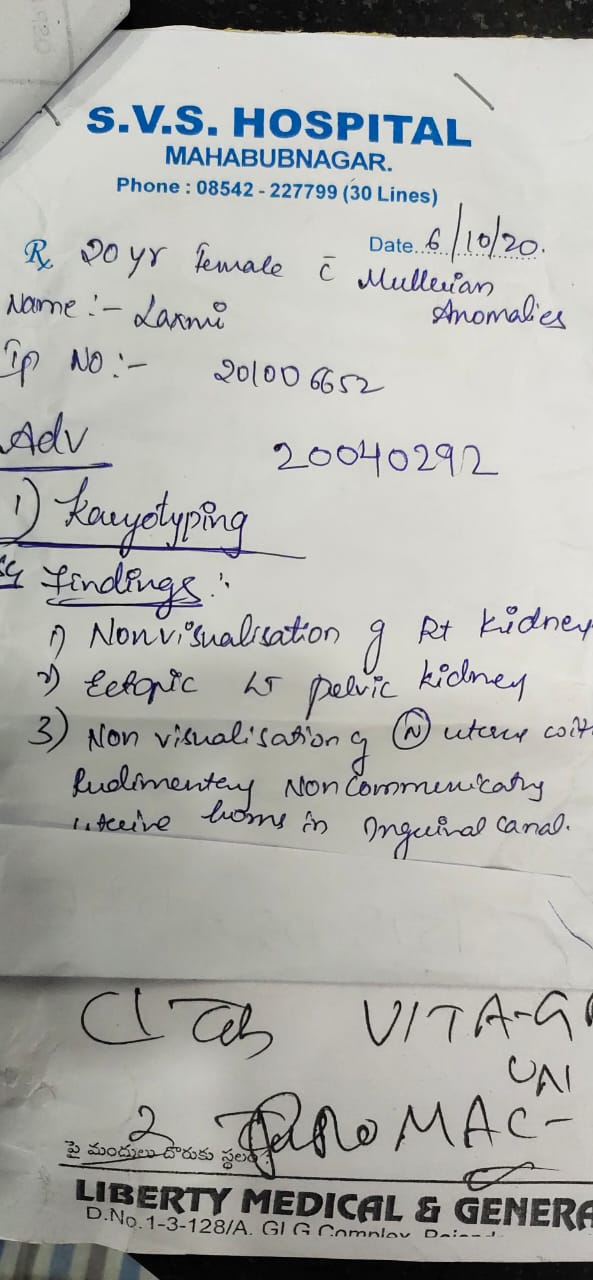 S.V.S. HOSPITAL
MAHABUBNAGAR.
Phone : 08542 - 227799 (30 Lines)
Date. 6/10/20.
Rx 20 yr female c̄ Mullerian
Anomalies
Name :- Laxmi
Ip No :- 201006652
Adv 20040292
1) Karyotyping
Findings :
1) Nonvisualisation of Rt kidney
2) Ectopic Lt pelvic kidney
3) Non visualisation of (N) uterus
Rudimentary Noncommunicating
uterine horns in Inguinal canal.
Tab VITA-G
UNI
2 MAC-
పై మందులు దొరుకు స్థలం :
LIBERTY MEDICAL & GENERA
D.No.1-3-128/A. GI G Complex